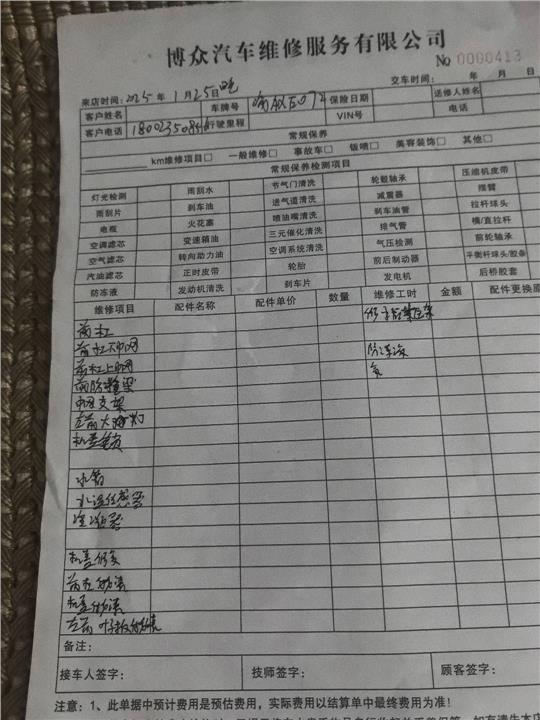 博众汽车维修服务有限公司
No 0000413
来店时间：2025 年 1 月 25 日 交车时间： 年 月 日
客户姓名 车牌号 保险日期 送修人姓名
客户电话 行驶里程 VIN号 电话
常规保养
km维修项目□ 一般维修□ 事故车□ 钣喷□ 美容装饰□ 其他□
常规保养检测项目
灯光检测 雨刮水 节气门清洗 轮毂轴承 压缩机皮带
雨刮片 刹车油 进气道清洗 减震器 摆臂
电瓶 火花塞 喷油嘴清洗 刹车油管 拉杆球头
空调滤芯 变速箱油 三元催化清洗 排气管 横/直拉杆
空气滤芯 转向助力油 空调系统清洗 气压检测 前轮轴承
汽油滤芯 正时皮带 轮胎 前后制动器 平衡杆球头/胶条
防冻液 发动机清洗 刹车片 发电机 后桥胶套
维修项目 配件名称 配件单价 数量 维修工时 金额 配件更换
前杠
前杠下中网
前杠上中网
前防撞梁
中网支架
左前大灯
机盖
水箱
水温传感器
冷凝器
机盖修复
前杠
机盖
左前叶子板
备注：
接车人签字： 技师签字： 顾客签字：
注意：1、此单据中预计费用是预估费用，实际费用以结算单中最终费用为准！